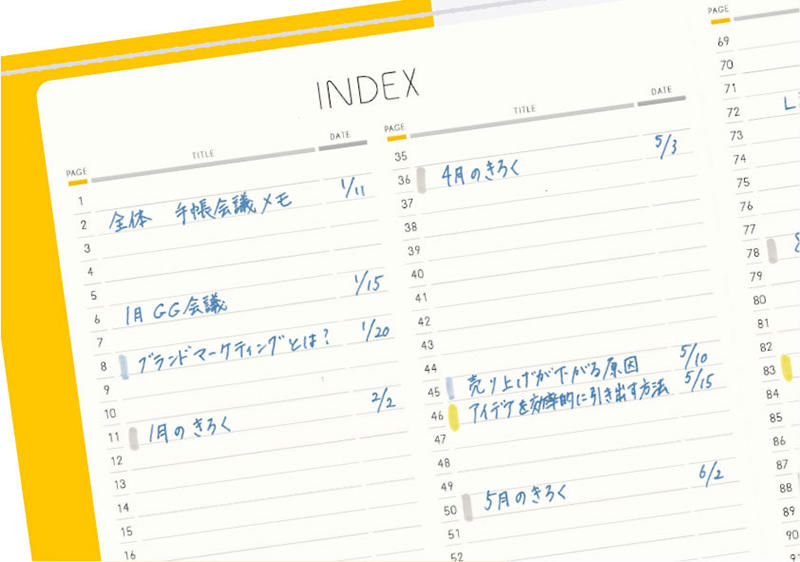 INDEX
PAGE TITLE DATE
1
2 全体 手帳会議メモ 1/11
3
4
5
6 1月 GG会議 1/15
7
8 ブランドマーケティングとは? 1/20
9
10
11 1月のきろく 2/2
12
13
14
15
16
PAGE TITLE DATE
35
36 4月のきろく 5/3
37
38
39
40
41
42
43
44
45 売り上げが下がる原因 5/10
46 アイデアを効率的に引き出す方法 5/15
47
48
49
50 5月のきろく 6/2
51
52
PAGE
69
70
71
72 L
73
74
75
76
77
78
79
80
81
82
83
84
85
86
87
88
89
90